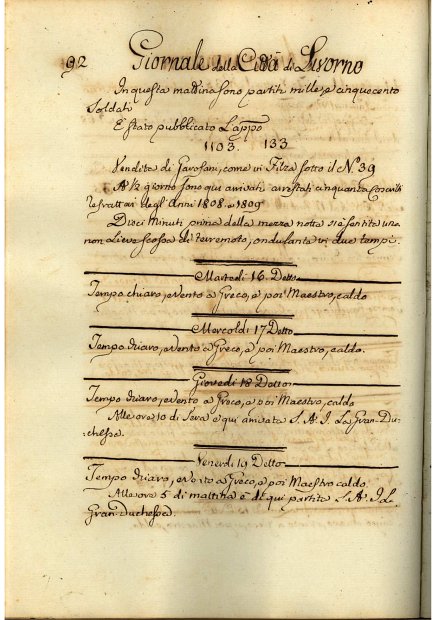 92 Giornale della Città di Livorno
In questa mattina sono partiti mille, e cinquecento
Soldati
È stato pubblicato Lappo
1103. 133
Vendita di Garofani, come in Filza sotto il N.º 39
A ½ giorno sono qui arrivati arrestati cinquanta Coscritti
refrattari degl'anni 1808. e 1809
Dieci minuti prima della mezza notte si è sentita una
non Lieve scossa di terremoto, ondulante in due tempi.
Martedì 16. Detto
Tempo chiaro, e vento a Greco, e poi Maestro, caldo
Mercoldì 17 Detto
Tempo chiaro, e vento a Greco, e poi Maestro, caldo.
Giovedì 18 Detto
Tempo chiaro, e vento a Greco, e poi Maestro, caldo
Alle ore 10 di Sera è qui arrivata S. A. I. La Gran-Du-
chessa.
Venerdì 19 Detto
Tempo chiaro, e vento a Greco, e poi Maestro caldo.
Alle ore 5 di mattina è di qui partita S. A. I. La
Gran-Duchessa.